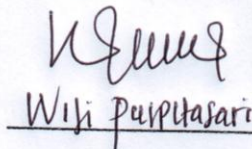 Wiji Puspitasari